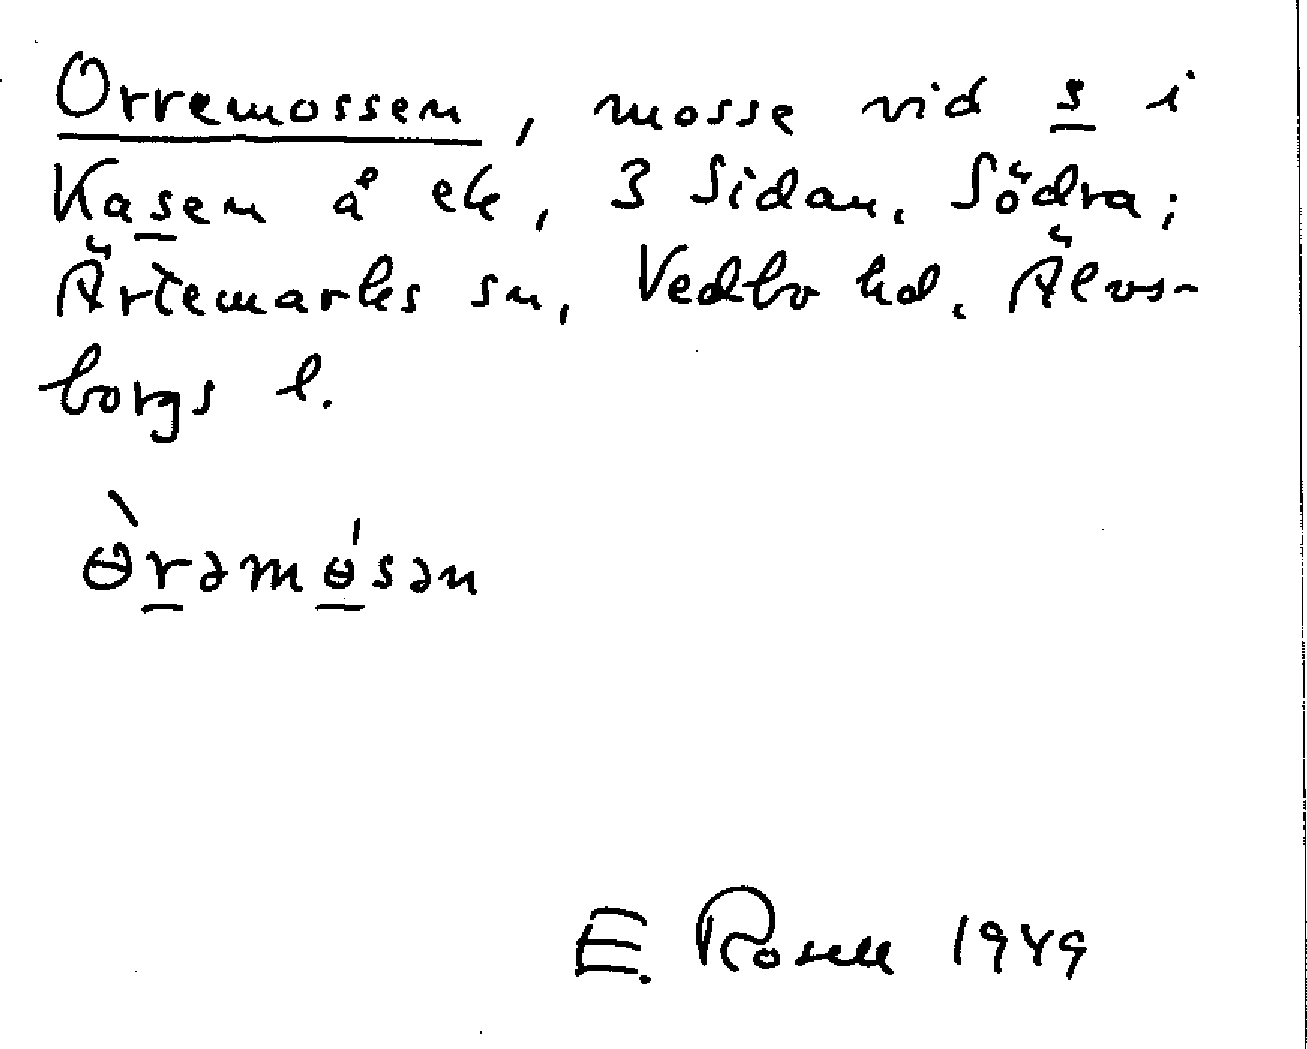 Orremossen, mosse vid s i
Kasen å ek, 3 Sidan, Södra;
Ärtemarks sn, Vedbo hd. Älvs-
borgs l.
ɵ̀rəmɵ́sən
E. Rosell 1949